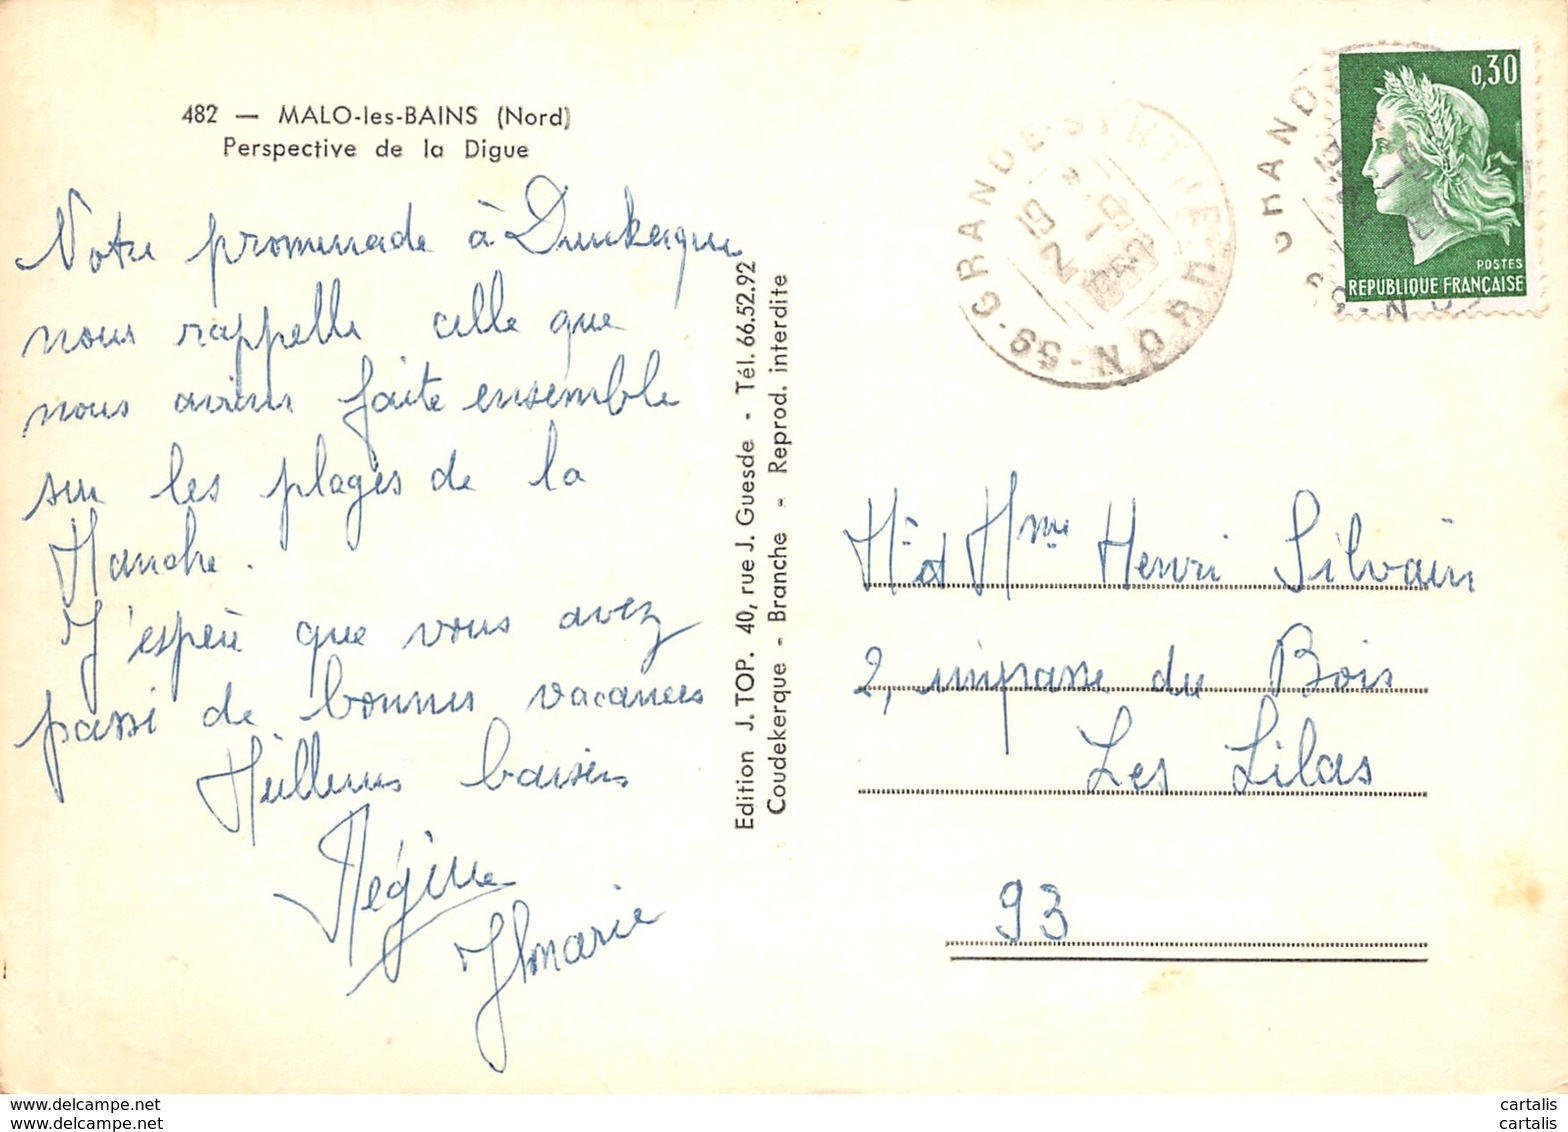 482 — MALO-les-BAINS (Nord)
Perspective de la Digue
Notre promenade à Dunkerque
nous rappelle celle que
nous avions faite ensemble
sur les plages de la
Manche.
J'espère que vous avez
passé de bonnes vacances
Meilleurs baisers
Régine
JMarie
Edition J. TOP. 40, rue J. Guesde - Tél. 66.52.92
Coudekerque - Branche - Reprod. interdite
GRANDE-SYNTHE
19 H
2 - 9
59 - NORD
0,30
POSTES
REPUBLIQUE FRANÇAISE
GRAND
59 - NO
Mr et Mme Henri Silvain
2, impasse du Bois
Les Lilas
93
cartalis
cartalis
cartalis
cartalis